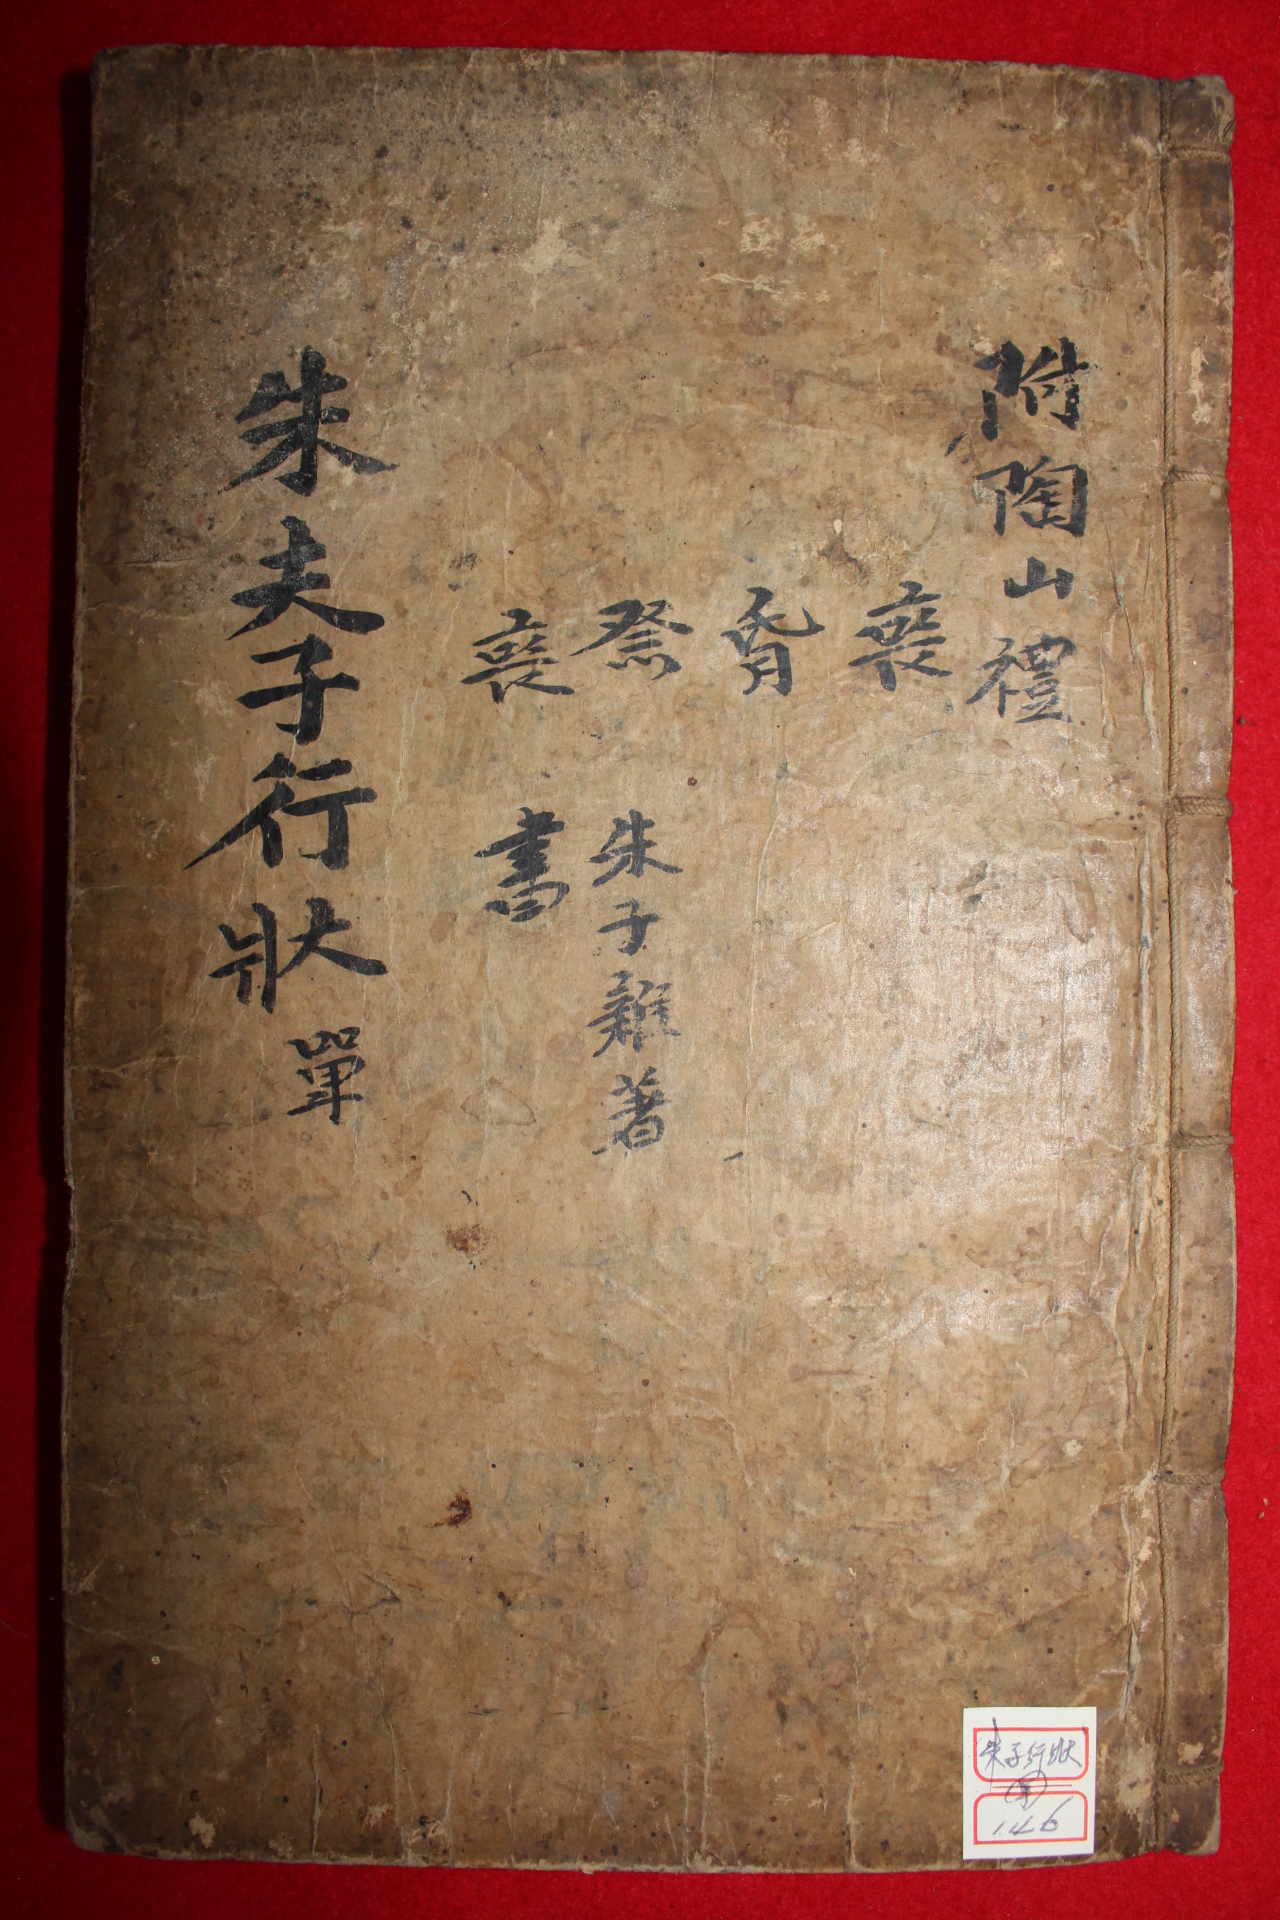 附陶山禮
喪
昏
祭 朱子雜著
喪 書
朱夫子行狀 單
朱子行狀
146